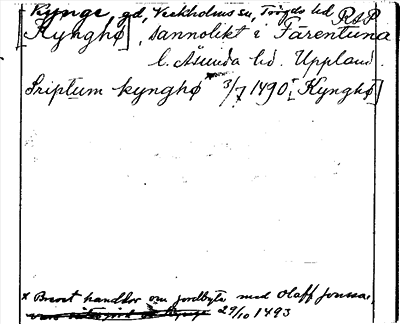 Kynge, gd, Veckholms sn, Trögds hd RSP
[Kynghø], sannolikt i Färentuna
l. Åsunda hd. Uppland.
Sriptum kynghø 3/7 1490 [Kynghø]
x Brevet handlar om jordbyte med Olaff Jonsson,
29/10 1493